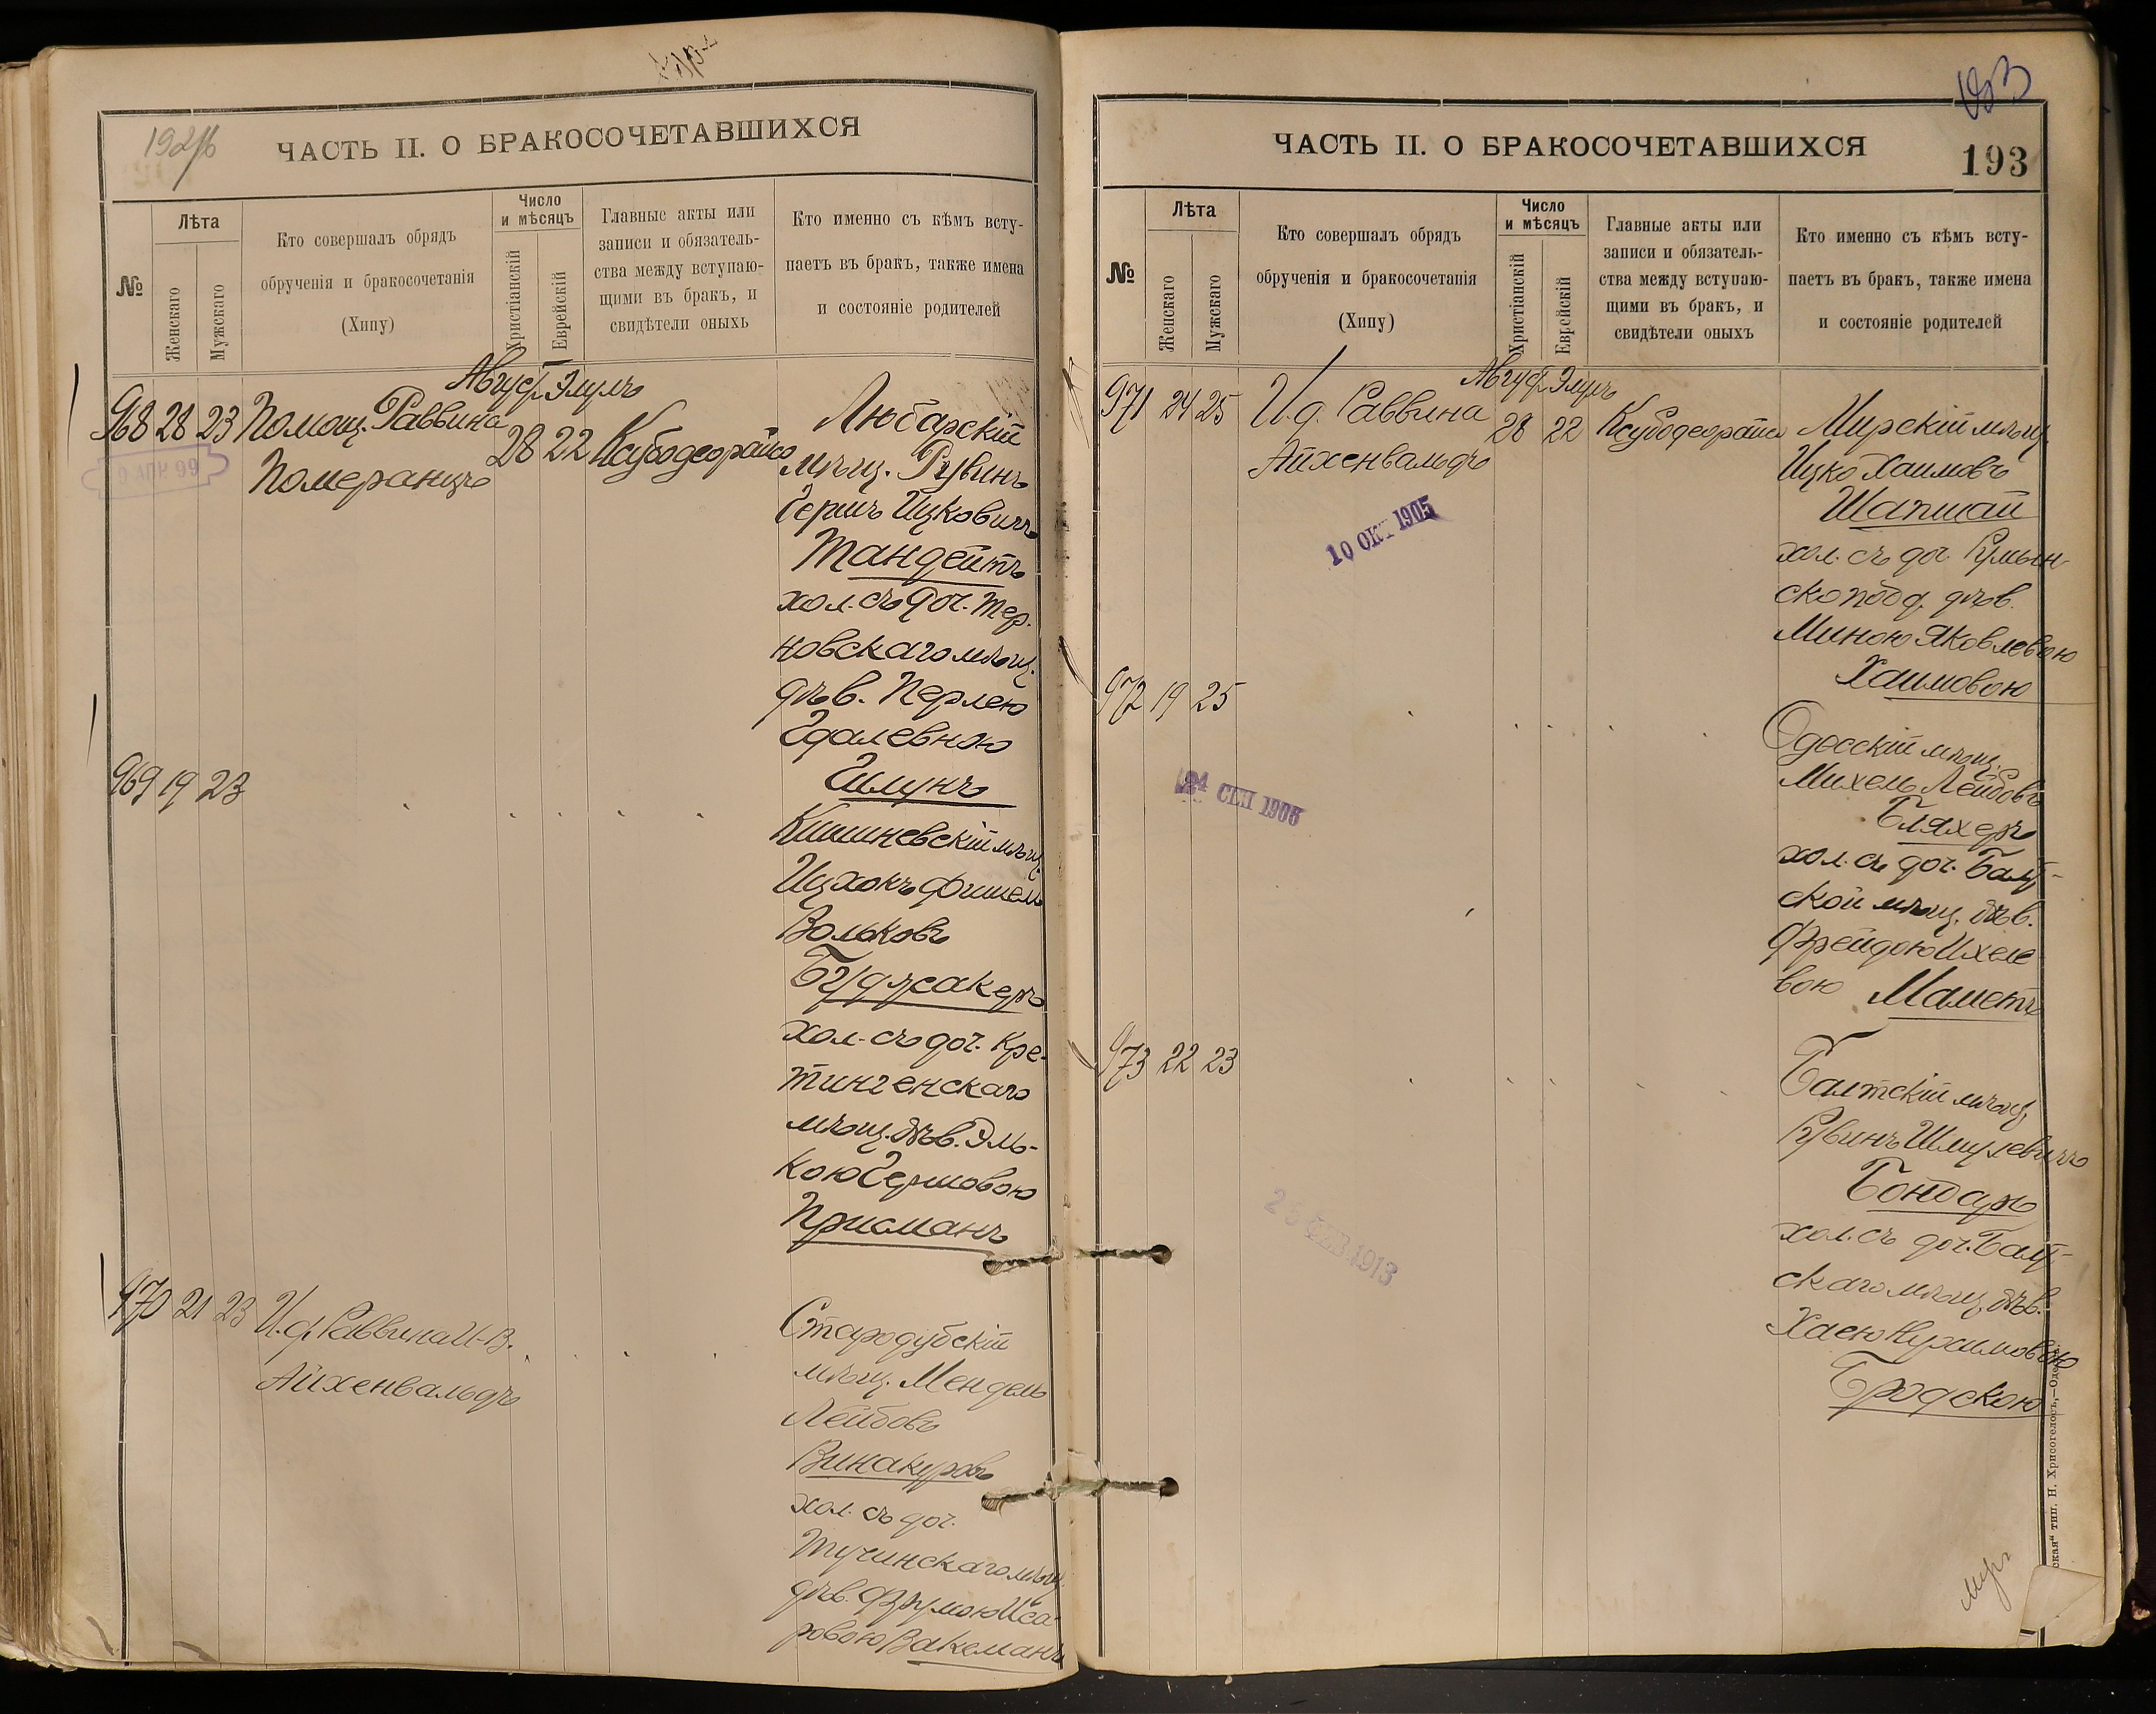 192 об
ЧАСТЬ II. О БРАКОСОЧЕТАВШИХСЯ
№
Лѣта
Женскаго
Мужскаго
Кто совершалъ обрядъ
обрученія и бракосочетанія
(Хипу)
Число
и мѣсяцъ
Христіанскій
Еврейскій
Главные акты или
записи и обязатель-
ства между вступаю-
щими въ бракъ, и
свидѣтели оныхъ
Кто именно съ кѣмъ всту-
паетъ въ бракъ, также имена
и состояніе родителей
Август. Элулъ
968 28 23 Помощ. Раввина 28 22 Ксубодеорайсо
Померанцъ
Любарскій
мѣщ. Рувинъ
Гершъ Ицковичъ
Тандейтъ
хол. съ доч. Тер-
новскаго мѣщ.
дѣв. Перлею
Гдалевною
Гилунъ
969 19 23
Кишиневскій мѣщ.
Ицхокъ Фишель
Вольковъ
Буджакеръ
хол. съ доч. Кре-
тингенскаго
мѣщ. дѣв. Эль-
кою Гершовою
Присманъ
970 21 23 И.д. Раввина И-В.
Айхенвальдъ
Стародубскій
мѣщ. Мендель
Лейбовъ
Винакуровъ
хол. съ доч.
Тучинскаго мѣщ.
дѣв. Фрумою Иса-
ровою Вакеманъ
193
ЧАСТЬ II. О БРАКОСОЧЕТАВШИХСЯ
№
Лѣта
Женскаго
Мужскаго
Кто совершалъ обрядъ
обрученія и бракосочетанія
(Хипу)
Число
и мѣсяцъ
Христіанскій
Еврейскій
Главные акты или
записи и обязатель-
ства между вступаю-
щими въ бракъ, и
свидѣтели оныхъ
Кто именно съ кѣмъ всту-
паетъ въ бракъ, также имена
и состояніе родителей
Август. Элулъ
971 24 25 И.д. Раввина 28 22 Ксубодеорайсо
Айхенвальдъ
10 ОКТ 1905
Мирскій мѣщ.
Ицко Хаимовъ
Шапшай
хол. съ доч. Румын-
ско подд. дѣв.
Миною Яковлевою
Хаимовою
972 19 25
24 СЕН 1905
Одесскій мѣщ.
Михель Лейбовъ
Бляхеръ
хол. съ доч. Балт-
ской мѣщ. дѣв.
Фрейдою Ихеле
вою Маметъ
973 22 23
1913
Балтскій мѣщ.
Рувинъ Шмулевичъ
Бондарь
хол. съ доч. Балт-
скаго мѣщ. дѣв.
Хаею Нухимовою
Бродскою
тип. Н. Хрисогелосъ,—Одесса